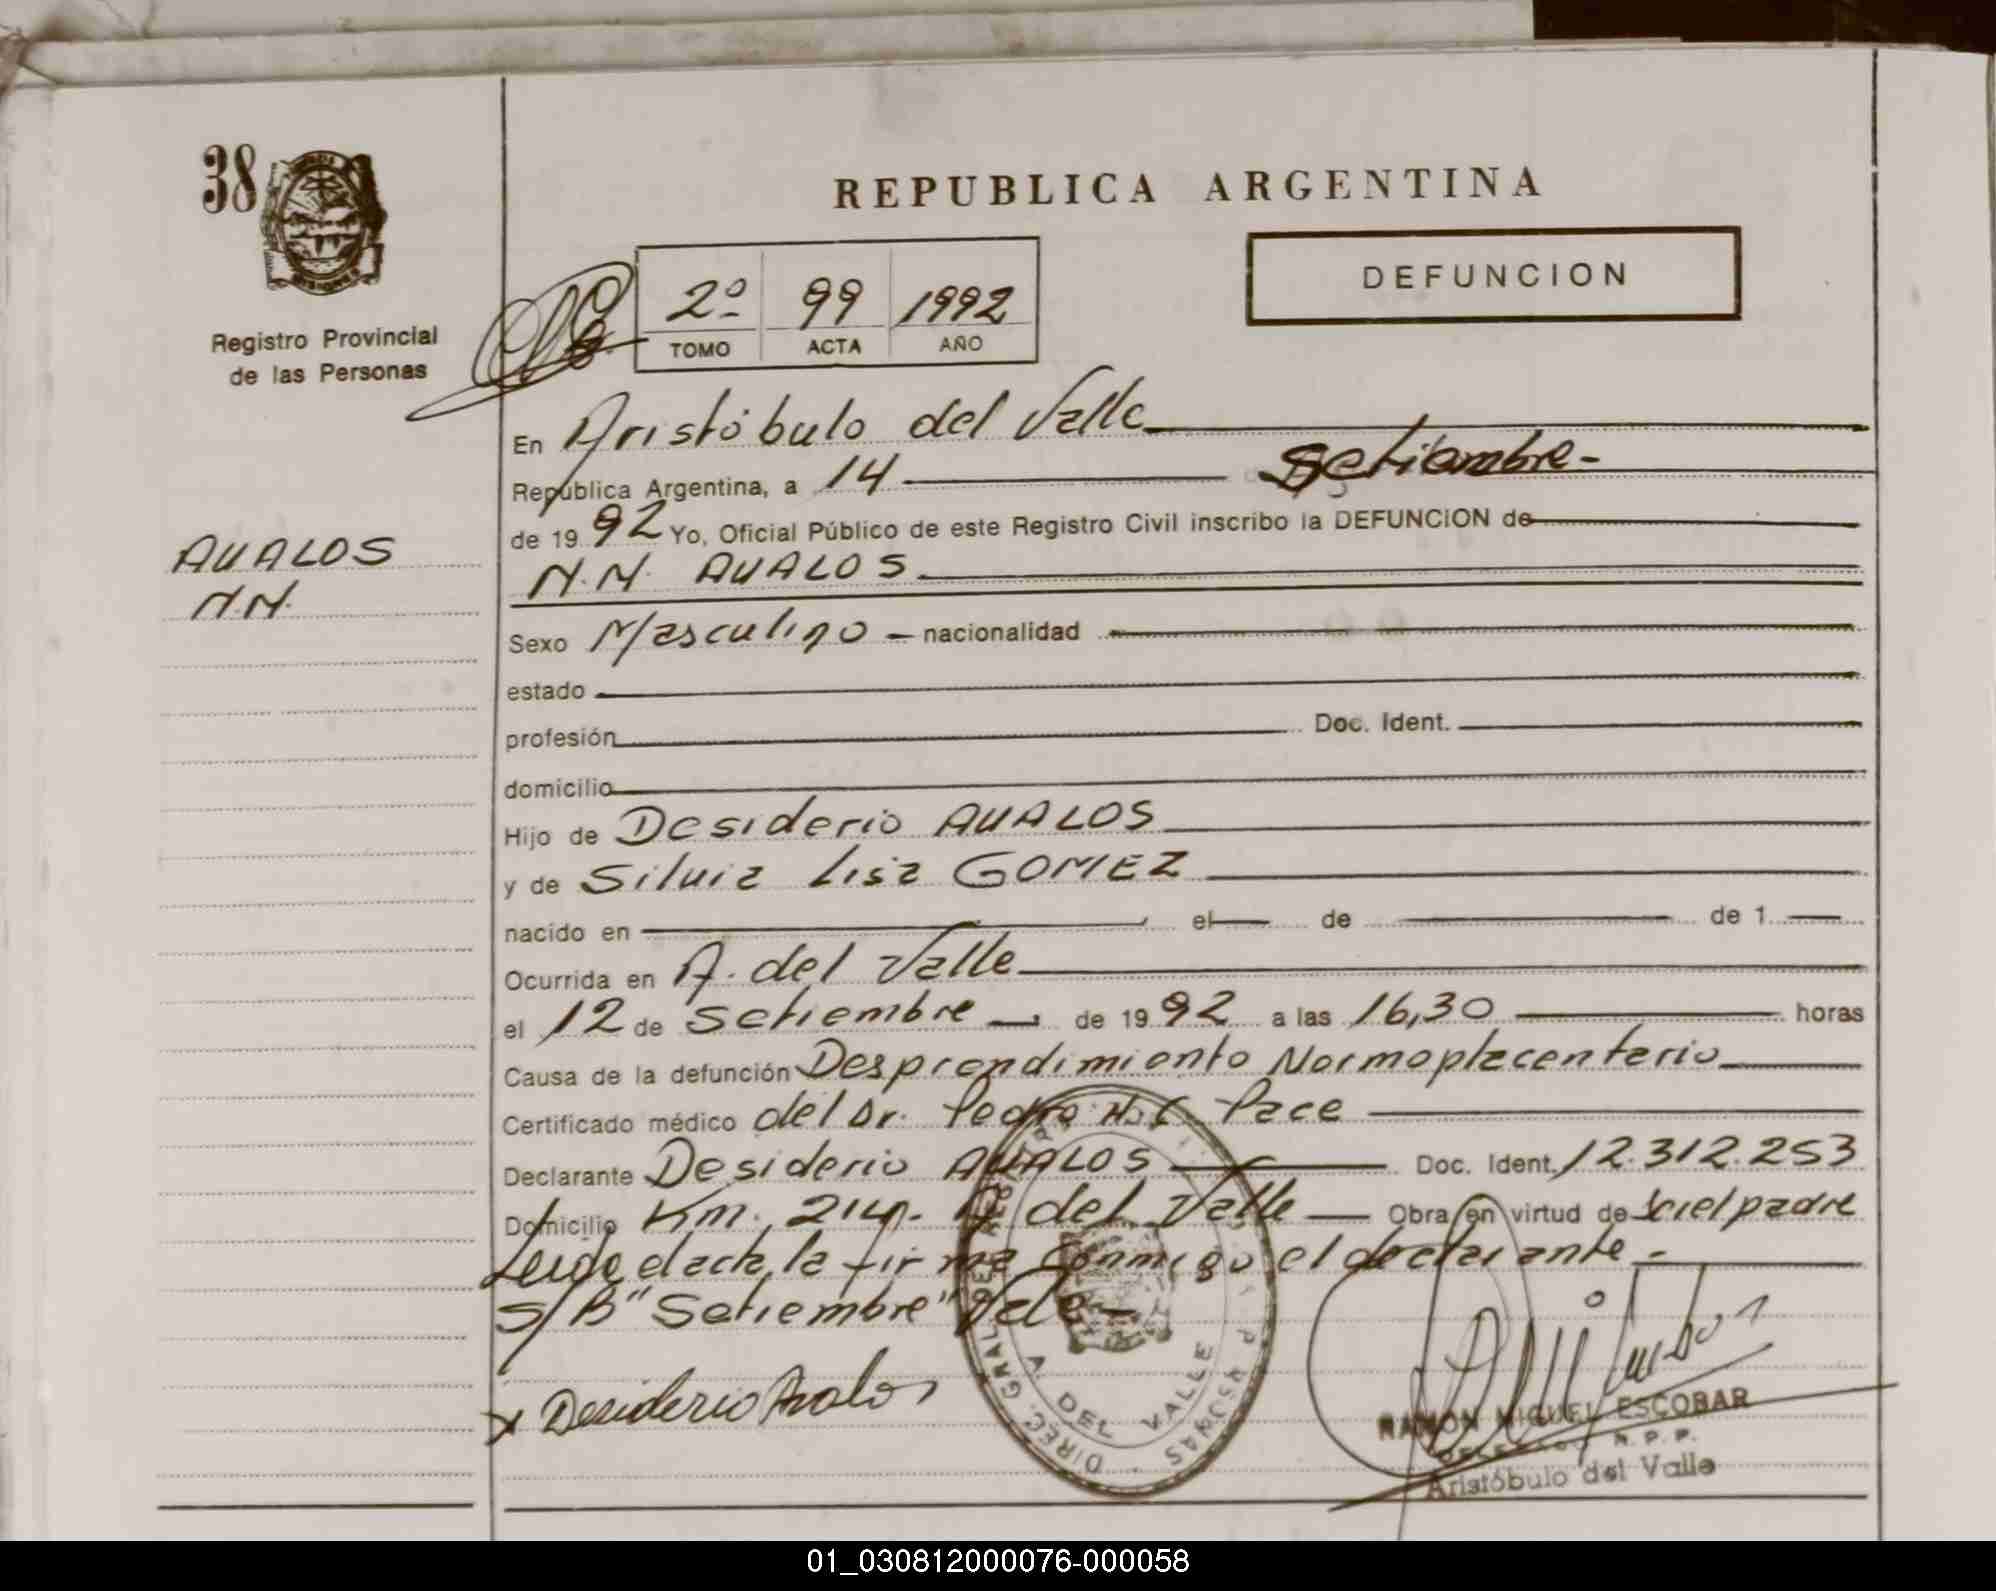 38
REPUBLICA ARGENTINA
DEFUNCION
Registro Provincial
de las Personas
2º 99 1992
TOMO ACTA AÑO
En Aristóbulo del Valle
República Argentina, a 14 Setiembre-
de 1992 Yo, Oficial Público de este Registro Civil inscribo la DEFUNCION de
AVALOS
N.N.
N.N. AVALOS
Sexo Masculino – nacionalidad
estado
profesión Doc. Ident.
domicilio
Hijo de Desiderio AVALOS
y de Silvia Lisa GOMEZ
nacido en el de de 1
Ocurrida en A. del Valle
el 12 de Setiembre de 1992 a las 16,30 horas
Causa de la defunción Desprendimiento Normoplacentario
Certificado médico del Dr. Pedro H. C. Pace
Declarante Desiderio AVALOS Doc. Ident. 12.312.253
Domicilio Km. 214. A del Valle Obra en virtud de ser el padre
Leido el acta, la firma conmigo el declarante-
S/B "Setiembre" Vale-
x Desiderio Avalos
DIREC. GRAL. DEL REGISTRO PERSONAS
A DEL VALLE
RAMON MIGUEL ESCOBAR
DELEGADO R.P.P.
Aristóbulo del Valle
01_030812000076-000058